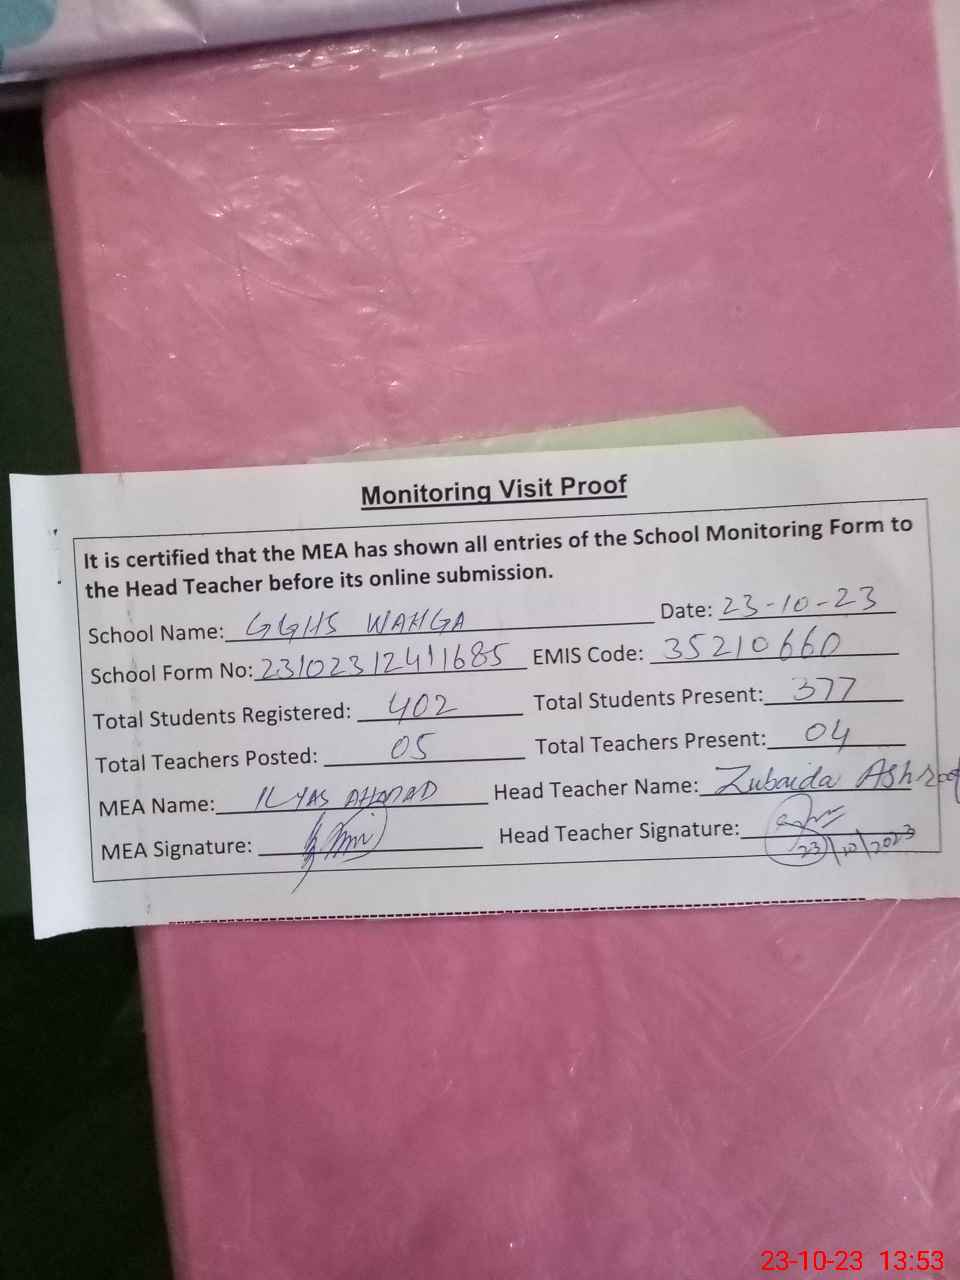 Monitoring Visit Proof
It is certified that the MEA has shown all entries of the School Monitoring Form to
the Head Teacher before its online submission.
School Name: GGHS WAHGA Date: 23-10-23
School Form No: 23102312411685 EMIS Code: 35210660
Total Students Registered: 402 Total Students Present: 377
Total Teachers Posted: 05 Total Teachers Present: 04
MEA Name: ILYAS AHMAD Head Teacher Name: Zubaida Ashraf
MEA Signature: Head Teacher Signature:
23/10/2023
23-10-23 13:53